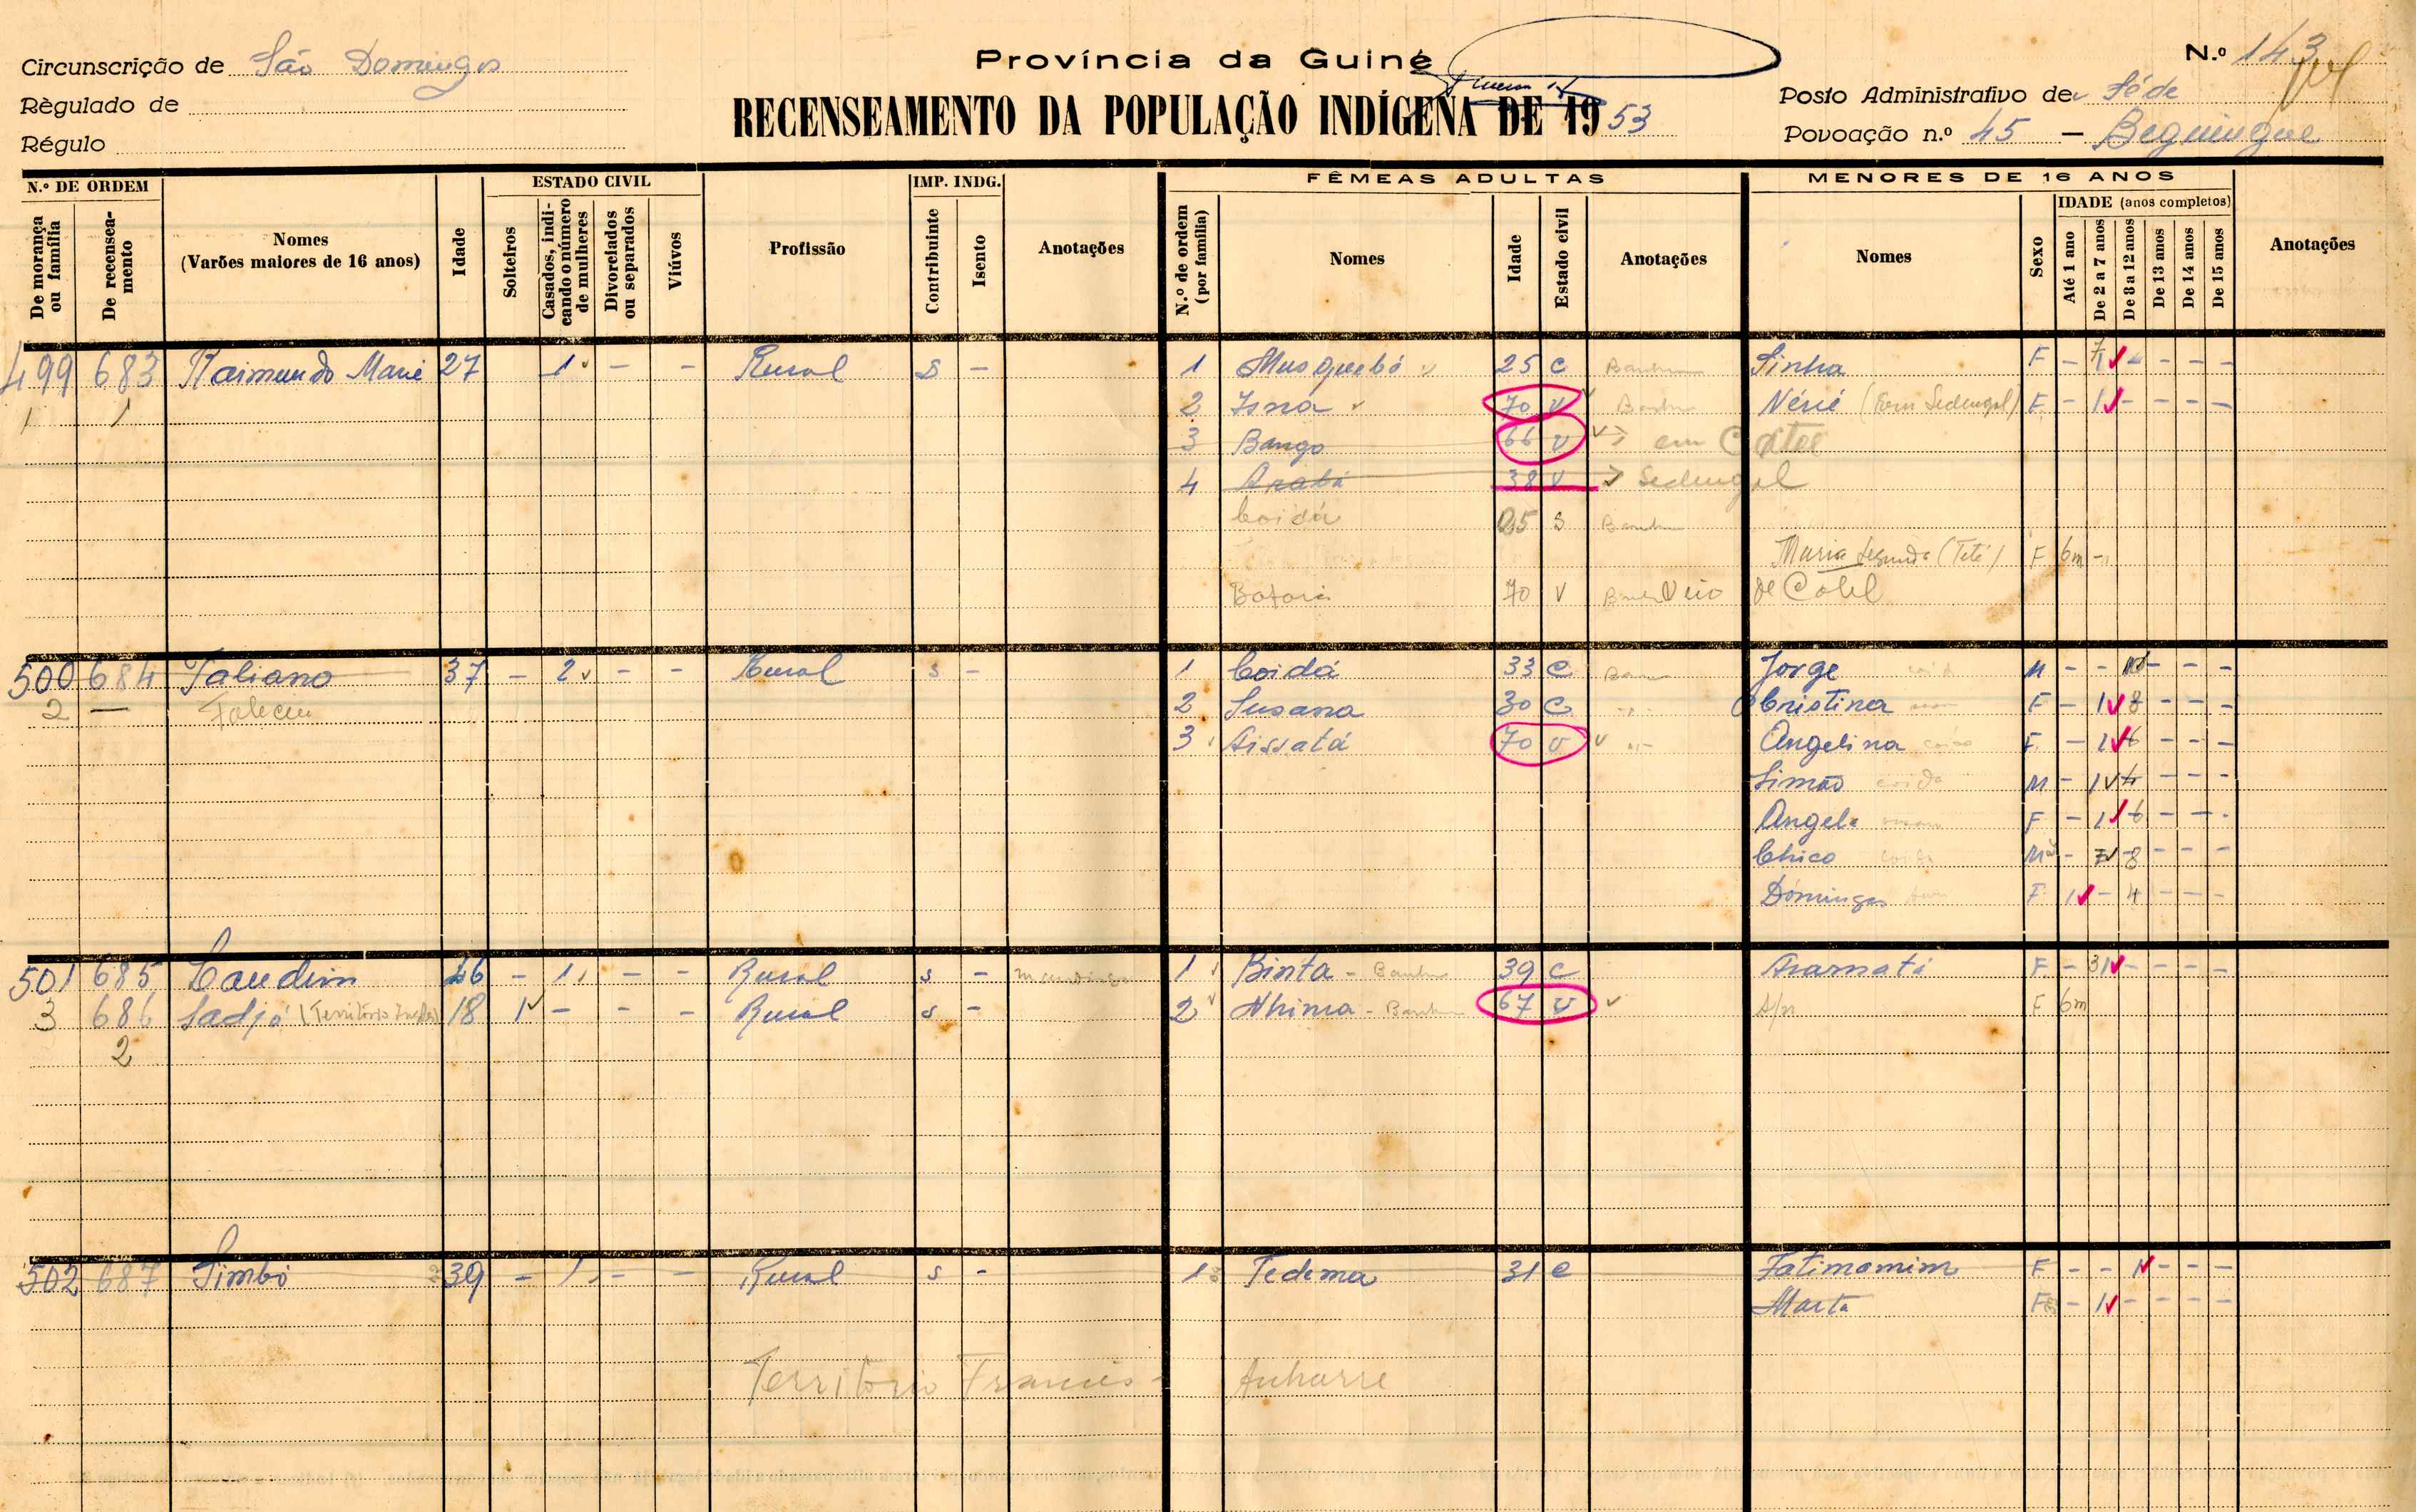 Circunscrição de São Domingos
Règulado de
Régulo
Província da Guiné
RECENSEAMENTO DA POPULAÇÃO INDÍGENA DE 1953
N.º 143
Posto Administrativo de Séde
Povoação n.º 45 — Beguingue
N.º DE ORDEM
De morança ou família
De recenseamento
Nomes
(Varões maiores de 16 anos)
Idade
ESTADO CIVIL
Solteiros
Casados, indicando o número de mulheres
Divorciados ou separados
Viúvos
Profissão
IMP. INDG.
Contribuinte
Isento
Anotações
FÊMEAS ADULTAS
N.º de ordem (por família)
Nomes
Idade
Estado civil
Anotações
MENORES DE 16 ANOS
Nomes
Sexo
IDADE (anos completos)
Até 1 ano
De 2 a 7 anos
De 8 a 12 anos
De 13 anos
De 14 anos
De 15 anos
Anotações
499 683 Raimundo Mané 27 1 - - Rural s - 1 Musquebó 25 c Sinha F - 1 - - - -
1 1 2 Isna 70 v Nérié (Em Sedengal) F - 1 - - - -
3 Bango 66 v em
4 Arabá 38 v Sedengal
Coidá 25 s
Maria Segunda (Teté) F 6m -
70 v Veio de
500 684 Taliano 37 - 2 - - Rural s - 1 Coidá 33 c Jorge M - - - - -
2 — Faleceu 2 Susana 30 c Cristina F - 1 8 - - -
3 Aissatá 70 v Angelina F - 1 6 - - -
Simão coida M - 1 4 - - -
Angela F - 1 6 - - -
Chico M - 8 - - -
Domingas F 1 - 4 - - -
501 685 Landim 46 - 1 - - Rural s - mandinga 1 Binta 39 c F - 1 - - - -
3 686 Sadjó (Território 18 1 - - - Rural s - 2 Nhima 67 v s/n F 6m
2
502 687 Simbó 39 - 1 - - Rural s - 1 Tedema 31 c Fatimamim F - - 1 - - -
Marta F - 1 - - - -
Território Francês - Anharre